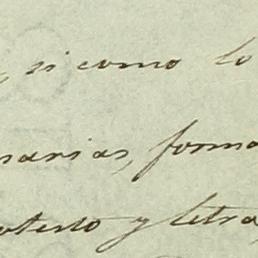 , si como lo
narias, forma
otesto y letra,